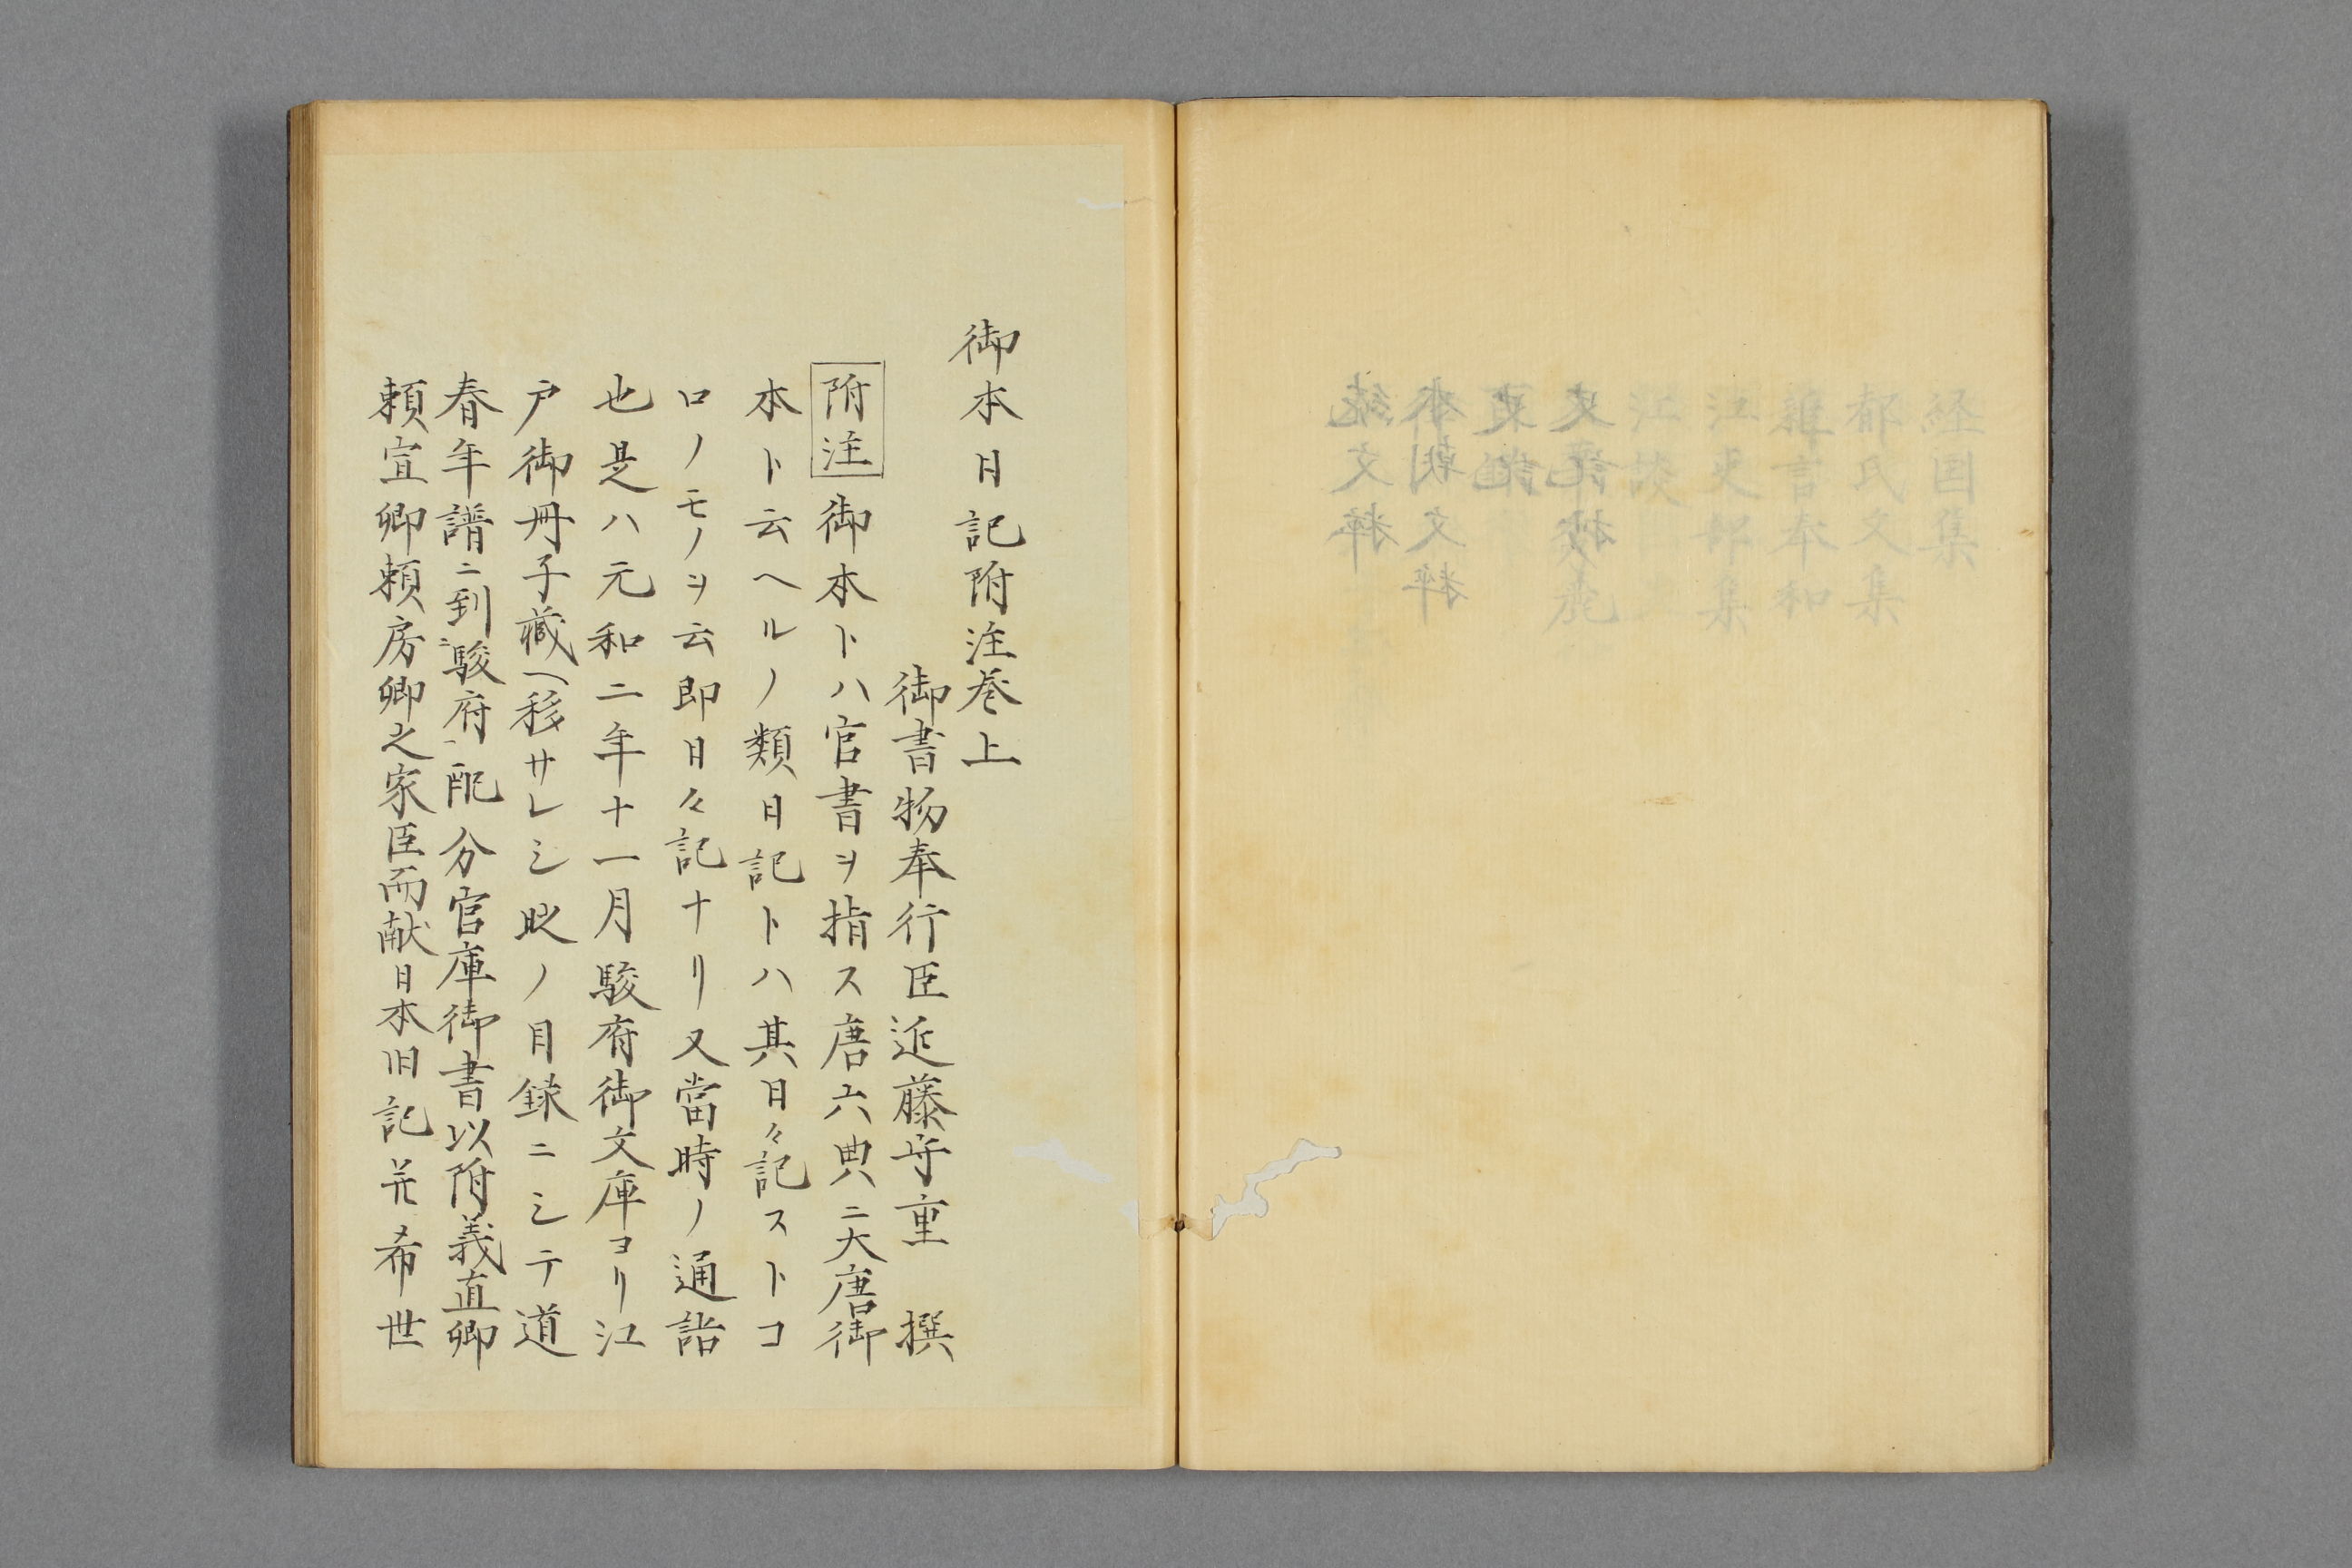 経国集
都氏文集
雑言奉和
江吏部集
江談
本朝文粹
続文粹
御本日記附注巻上
御書物奉行臣近藤守重 撰
附注 御本トハ官書ヲ指ス唐六典ニ大唐御
本ト云ヘルノ類日記トハ其日々記ストコ
ロノモノヲ云即日々記ナリ又當時ノ通語
也是ハ元和二年十一月駿府御文庫ヨリ江
戸御冊子蔵ヘ移サレシ時ノ目録ニシテ道
春年譜ニ到駿府配分官庫御書以附義直卿
頼宣卿頼房卿之家臣而献日本旧記并希世